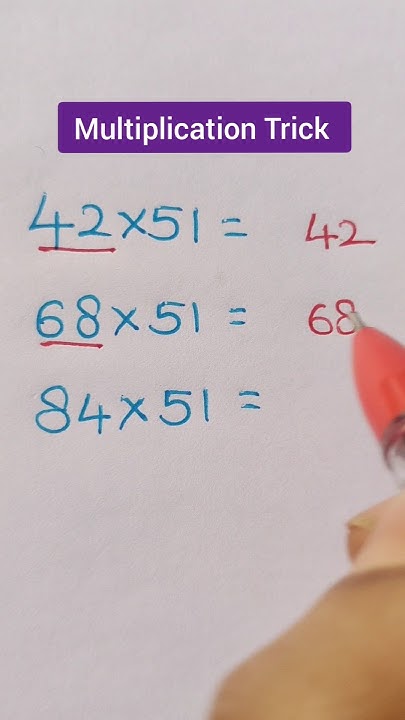 Multiplication Trick
42×51= 42
68×51= 68
84×51=